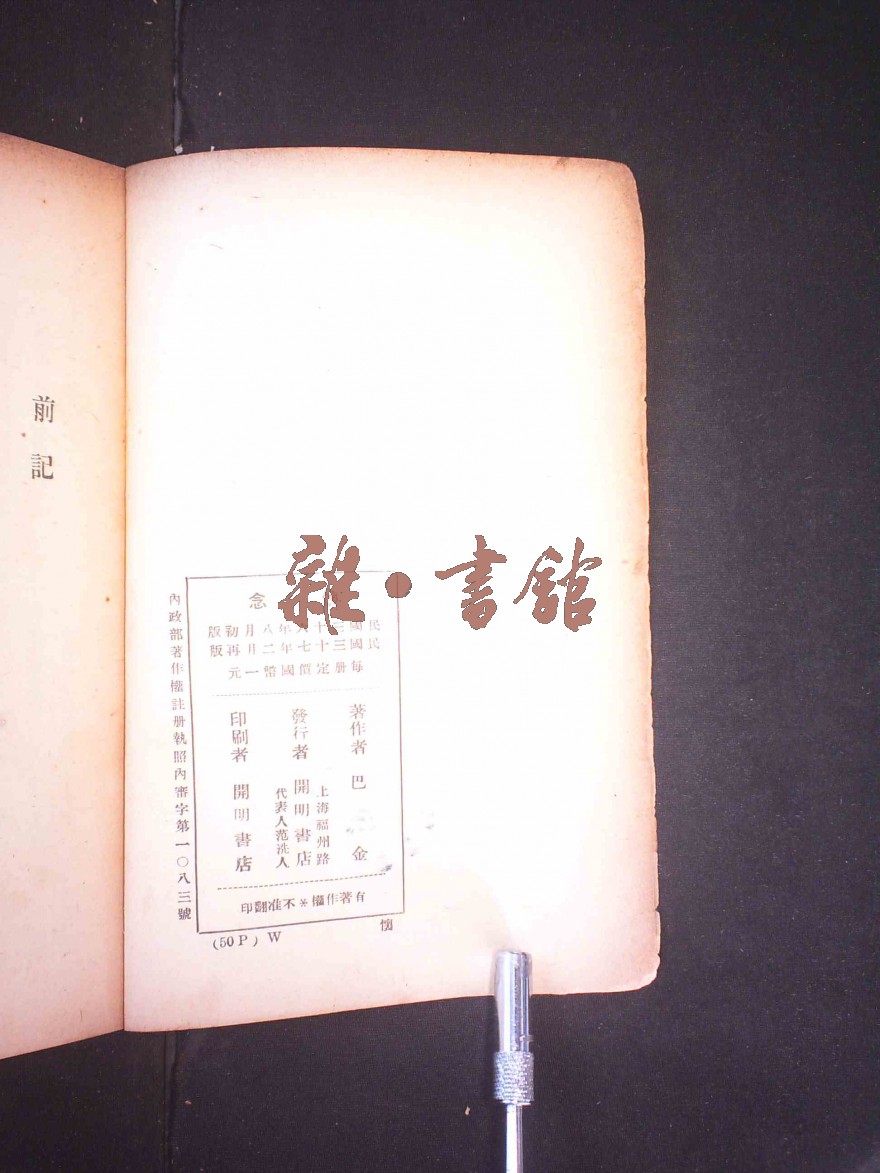 前記
雜·書館
念
民國三十六年八月初版
民國三十七年二月再版
每册定價國幣一元
著作者 巴金
上海福州路
發行者 開明書店
代表人范洗人
印刷者 開明書店
有著作權*不准翻印
內政部著作權註册執照內審字第一〇八三號
(50P) W
懷